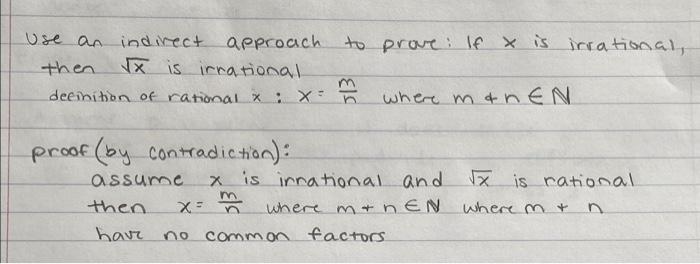 Use an indirect approach to prove: If x is irrational,
then √x is irrational
definition of rational x : x = m/n where m + n ∈ ℕ
proof (by contradiction):
assume x is irrational and √x is rational
then x = m/n where m + n ∈ ℕ where m + n
have no common factors